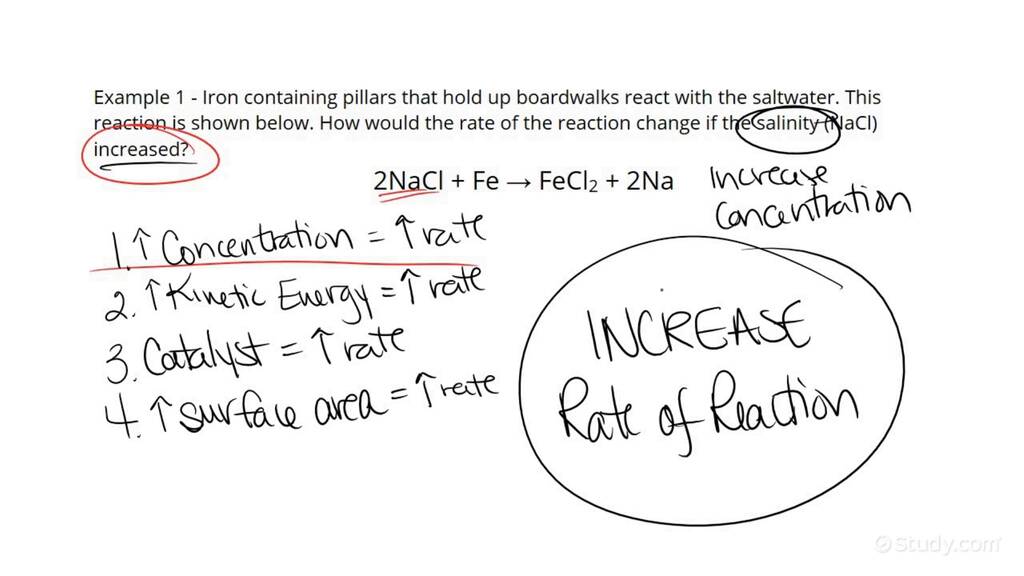 Example 1 - Iron containing pillars that hold up boardwalks react with the saltwater. This
reaction is shown below. How would the rate of the reaction change if the salinity (NaCl)
increased?
2NaCl + Fe → FeCl₂ + 2Na
Increase
Concentration
1. ↑ Concentration = ↑ rate
2. ↑ Kinetic Energy = ↑ rate
3. Catalyst = ↑ rate
4. ↑ surface area = ↑ rate
INCREASE
Rate of Reaction
©Study.com